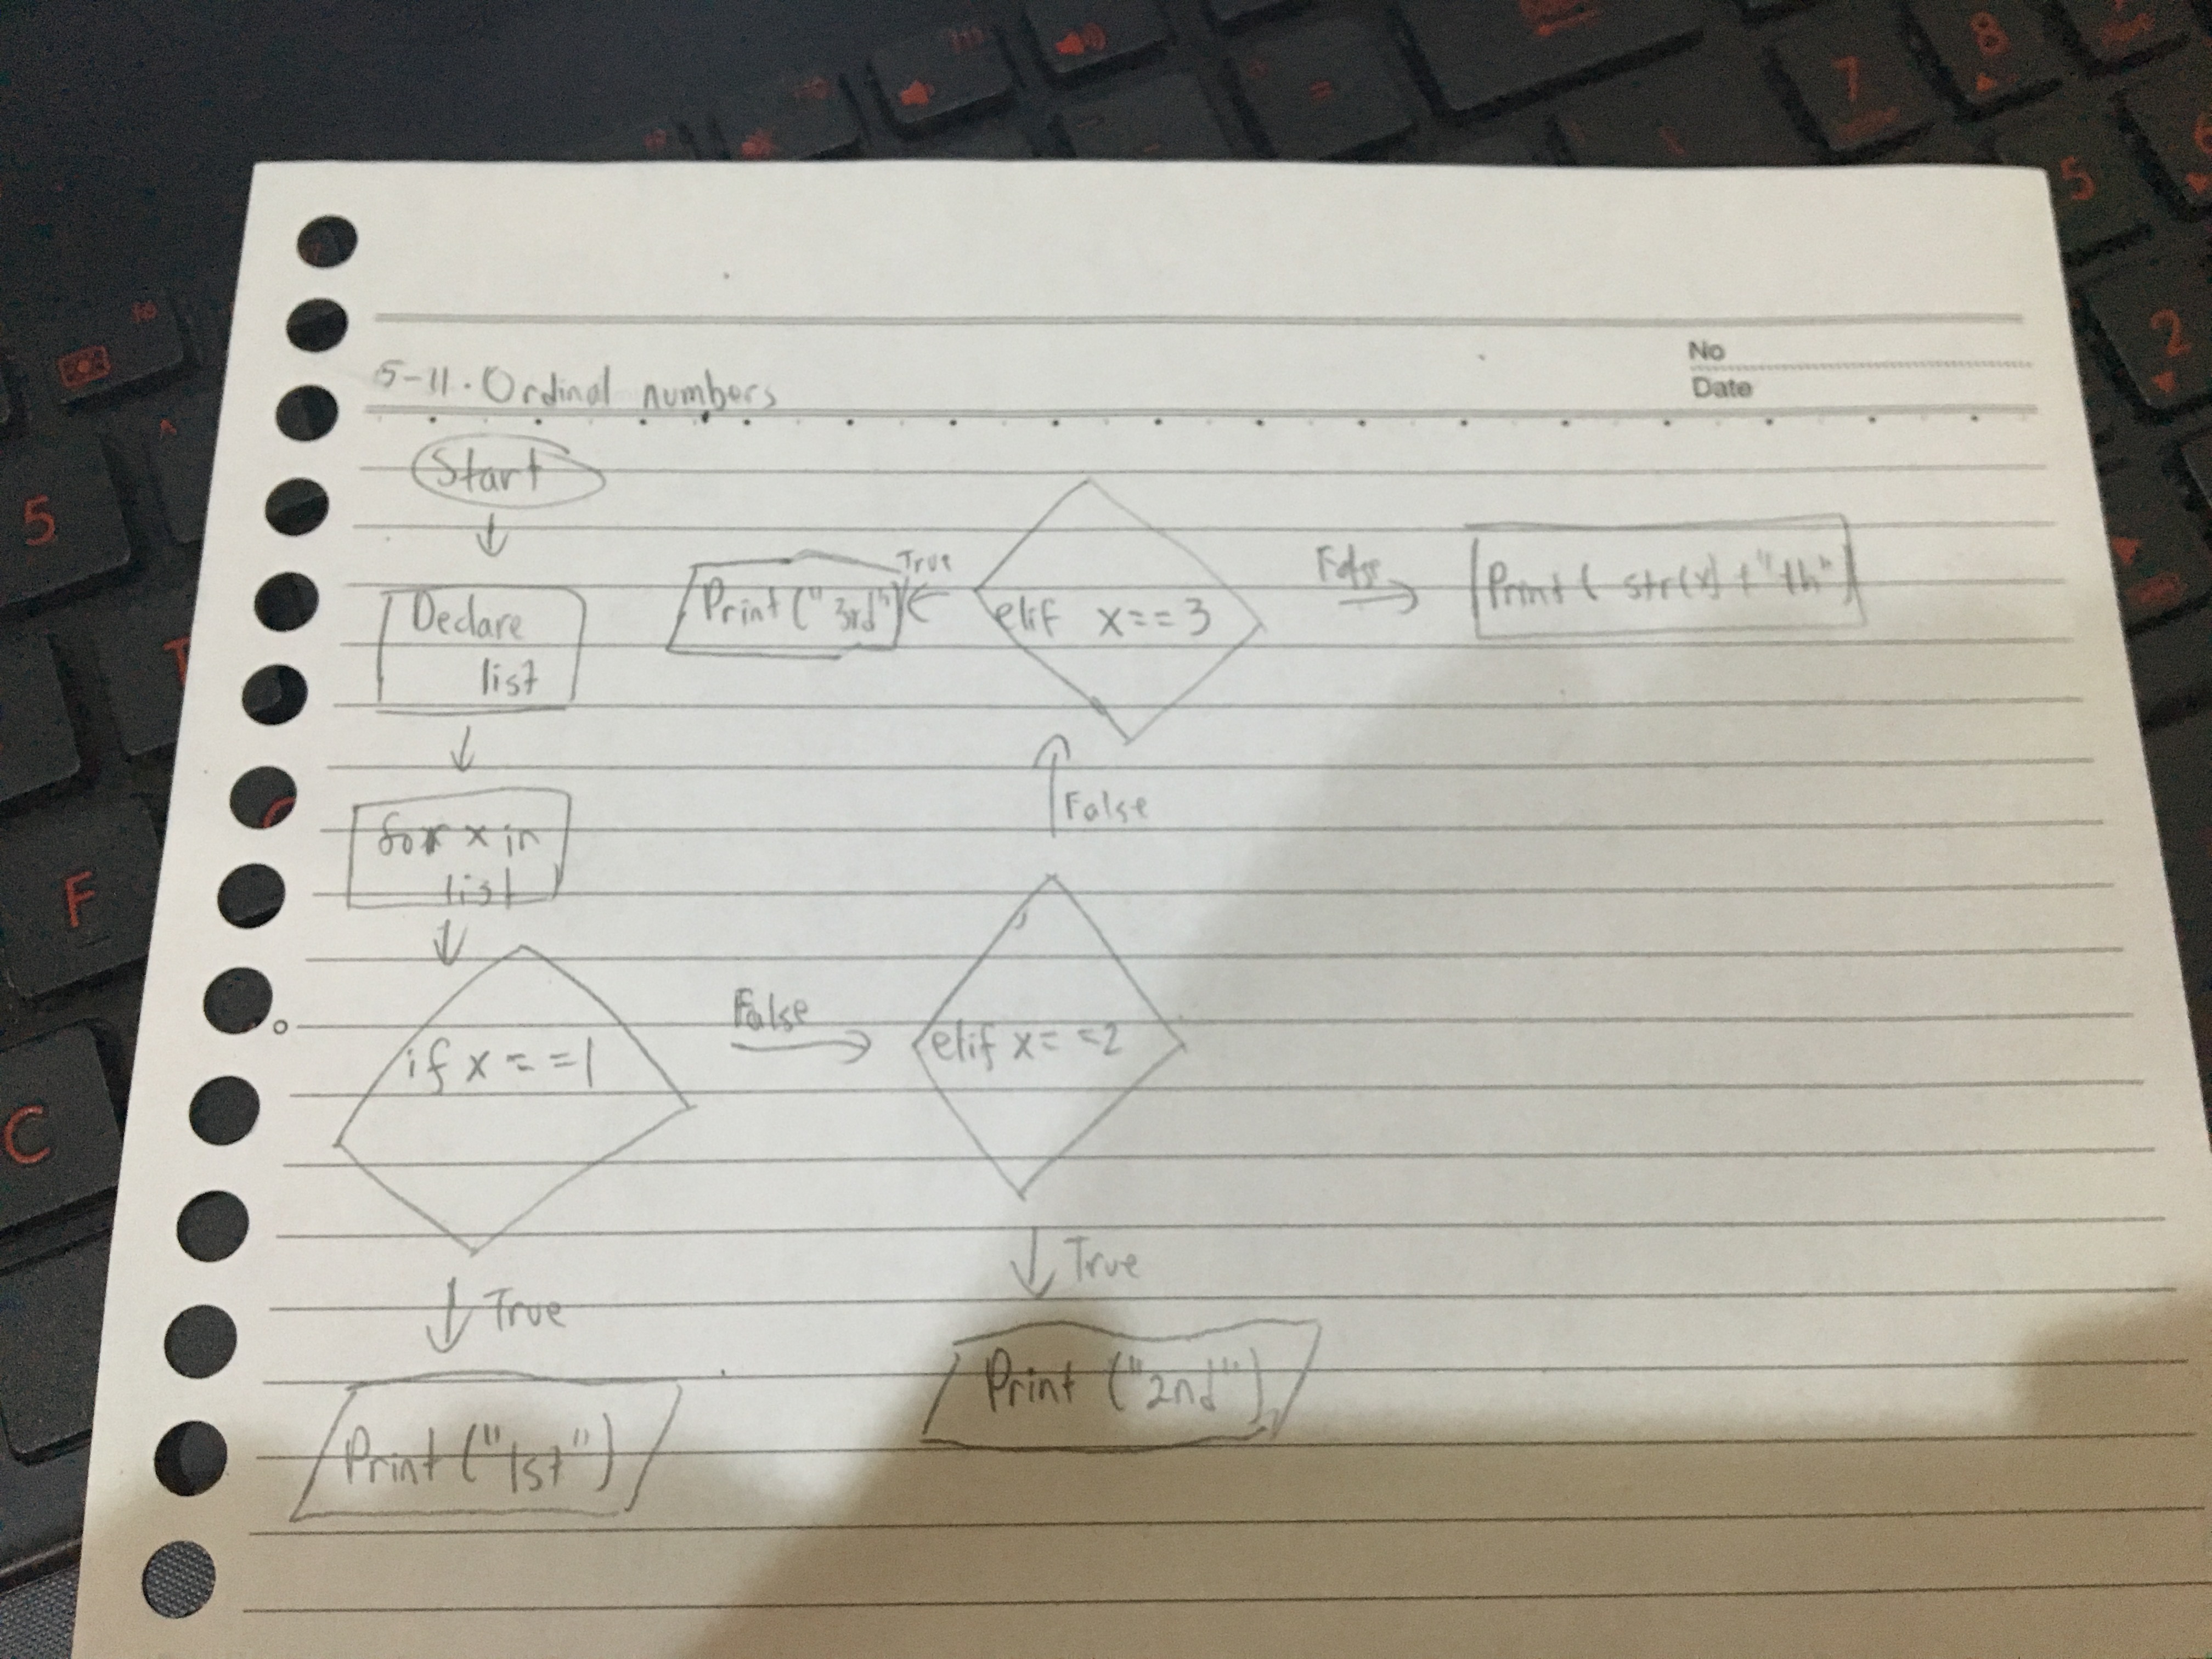 No
Date
5-11. Ordinal numbers
Start
Declare
list
for x in
list
if x == 1
True
Print ("1st")
False
elif x == 2
True
Print ("2nd")
False
elif x == 3
True
Print ("3rd")
False
Print ( str(x) + "th")
C
F
5
7
8
5
2
6